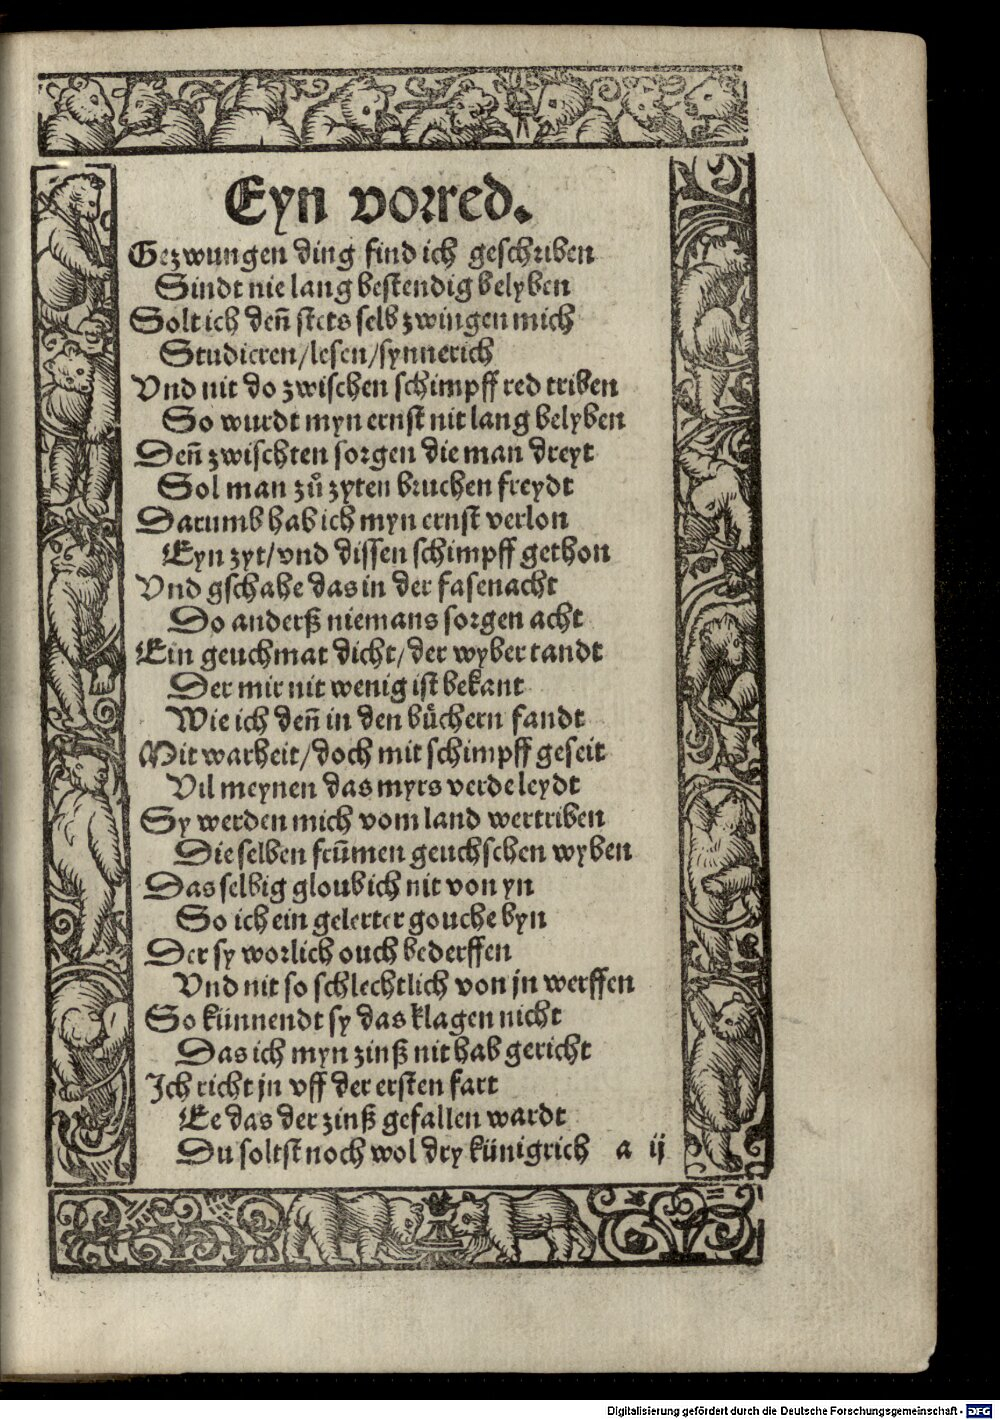 Eyn vorred.
Gezwungen ding find ich geschriben
Sindt nie lang bestendig belyben
Solt ich deñ stets selb zwingen mich
Studieren/lesen/synnerich
Vnd nit do zwischen schimpff red triben
So wurdt myn ernst nit lang belyben
Deñ zwischten sorgen die man dreyt
Sol man zů zyten bruchen freydt
Darumb hab ich myn ernst verlon
Eyn zyt/vnd dissen schimpff gethon
Vnd gschahe das in der fasenacht
Do anderß niemans sorgen acht
Ein geuchmat dicht/der wyber tandt
Der mir nit wenig ist bekant
Wie ich deñ in den bůchern fandt
Mit warheit/doch mit schimpff geseit
Vil meynen das myrs verde leydt
Sy werden mich vom land wertriben
Die selben frūmen geuchschen wyben
Das selbig gloub ich nit von yn
So ich ein gelerter gouche byn
Der sy worlich ouch bederffen
Vnd nit so schlechtlich von jn werffen
So künnendt sy das klagen nicht
Das ich myn zinß nit hab gericht
Ich richt jn vff der ersten fart
Ee das der zinß gefallen wardt
Du soltst noch wol dry künigrich a ij
Digitalisierung gefördert durch die Deutsche Forschungsgemeinschaft - DFG